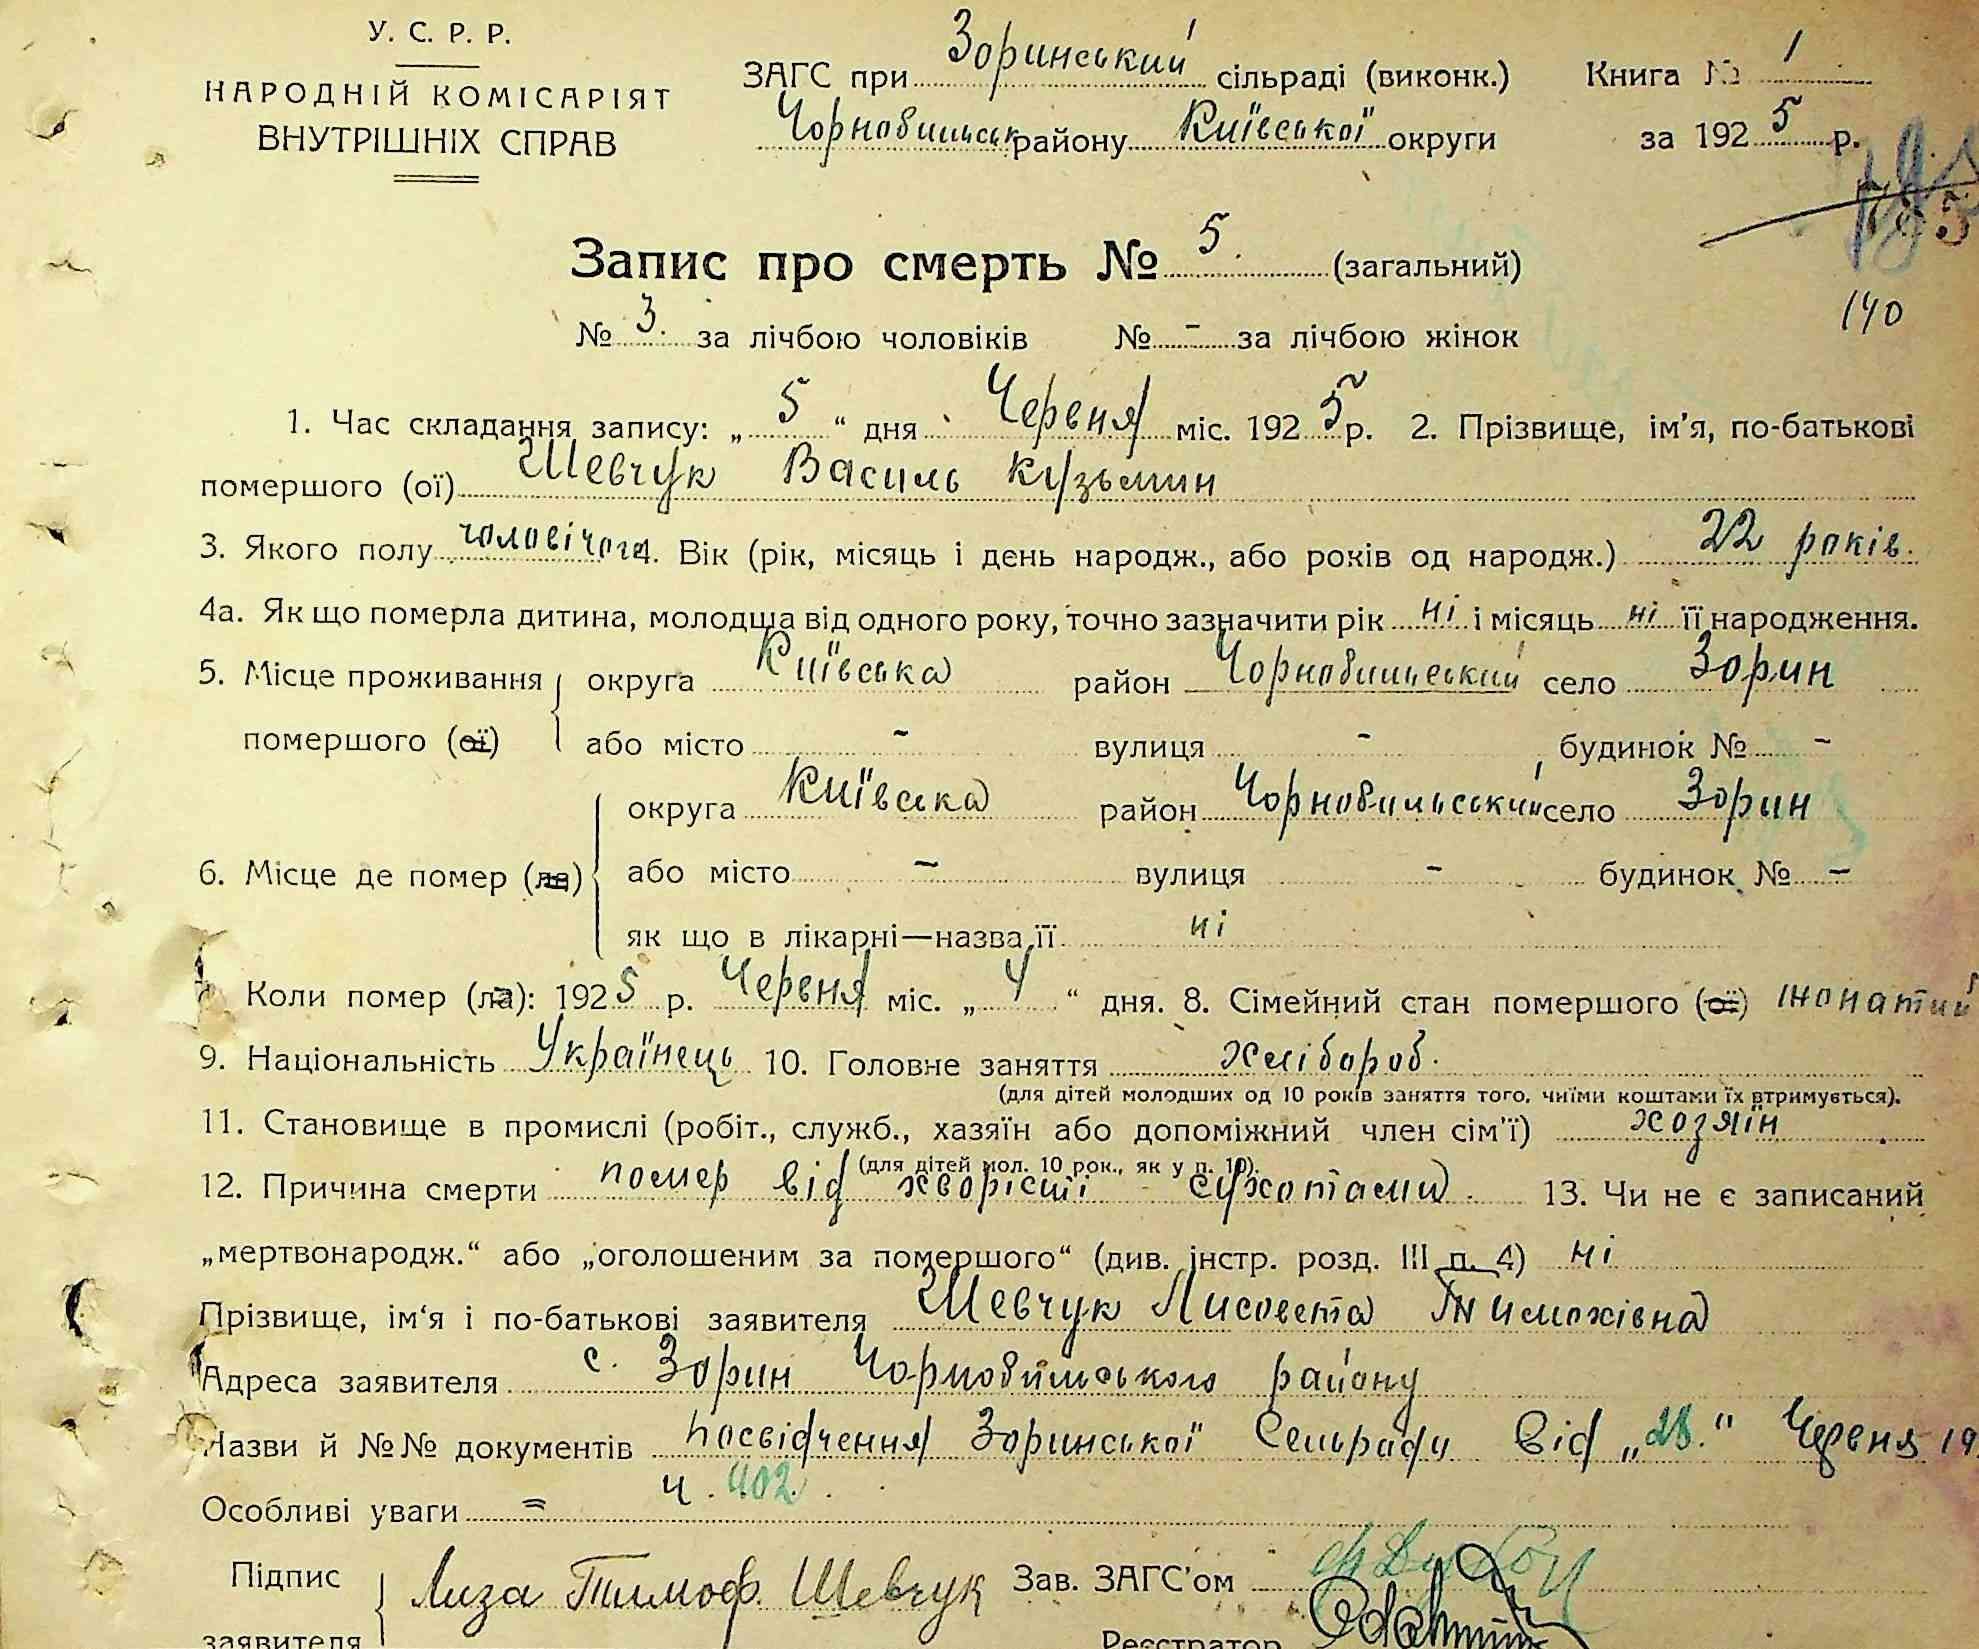 У. С. Р. Р.
НАРОДНІЙ КОМІСАРІЯТ
ВНУТРІШНІХ СПРАВ
ЗАГС при Зоринський сільраді (виконк.) Книга № 1
Чорнобильськ району Київської округи за 1925 р.
Запис про смерть № 5. (загальний)
140
№ 3. за лічбою чоловіків № - за лічбою жінок
1. Час складання запису: „5“ дня Червня міс. 1925 р. 2. Прізвище, ім'я, по-батькові
помершого (ої) Шевчук Василь Кузьмин
3. Якого полу чоловічого 4. Вік (рік, місяць і день народж., або років од народж.) 22 років.
4а. Як що померла дитина, молодша від одного року, точно зазначити рік ні і місяць ні її народження.
5. Місце проживання округа Київська район Чорнобильський село Зорин
помершого (ої) або місто - вулиця - будинок № -
округа Київська район Чорнобильський село Зорин
6. Місце де помер (ла) або місто - вулиця - будинок № -
як що в лікарні—назва її ні
Коли помер (ла): 1925 р. Червня міс. „4“ дня. 8. Сімейний стан помершого (ої) жонатий
9. Національність Українець 10. Головне заняття хлібороб.
(для дітей молодших од 10 років заняття того, чиїми коштами їх втримується).
11. Становище в промислі (робіт., служб., хазяїн або допоміжний член сім'ї) хозяїн
(для дітей мол. 10 рок., як у п. 10).
12. Причина смерти помер від хворісті сухотами. 13. Чи не є записаний
„мертвонародж.“ або „оголошеним за помершого“ (див. інстр. розд. III п. 4) ні
Прізвище, ім'я і по-батькові заявителя Шевчук Лисовета Тимохівна
Адреса заявителя с. Зорин Чорнобильського району
Назви й №№ документів посвідчення Зоринської Сельради від „28.“ Червня 19
ч. 402.
Особливі уваги =
Підпис Лиза Тимоф. Шевчук Зав. ЗАГС'ом
заявителя Реєстратор